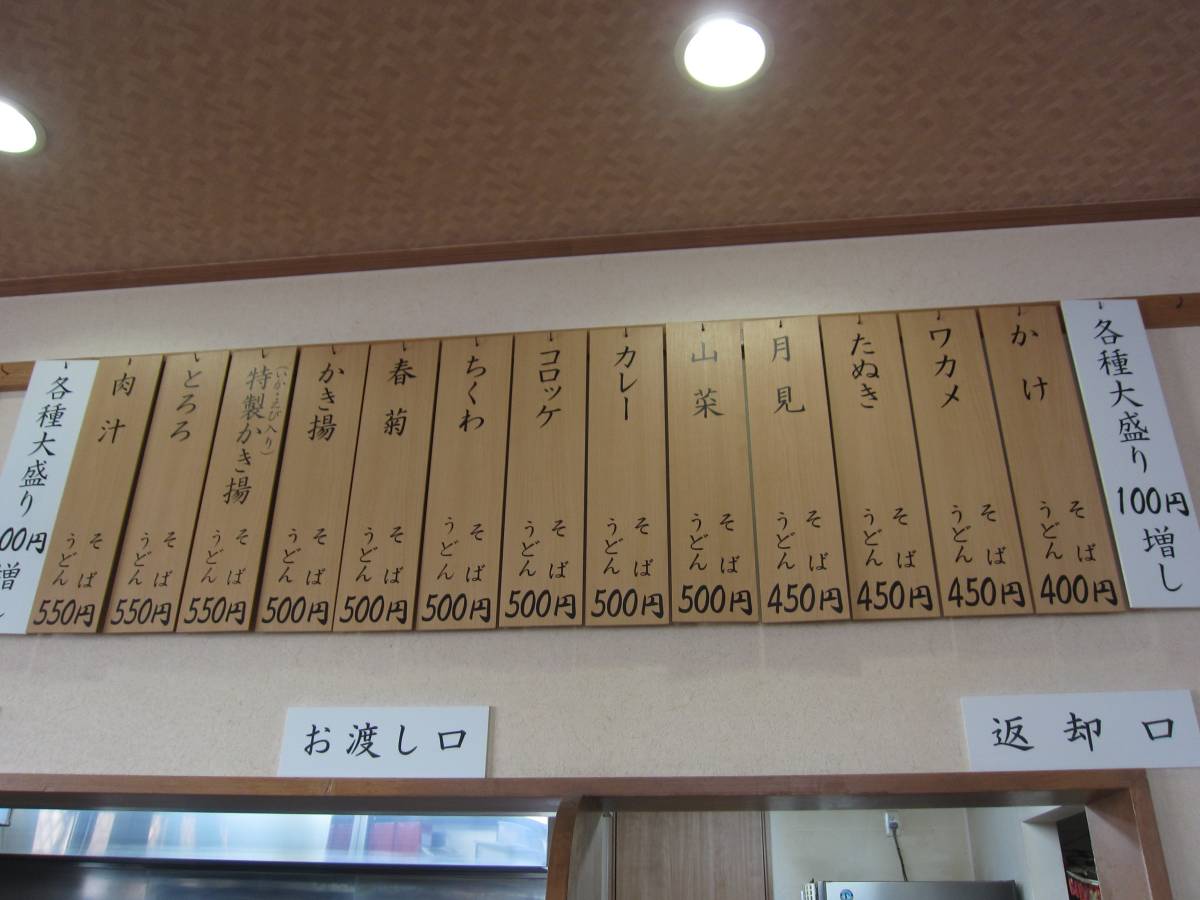 各種大盛り100円増し
かけ
そば
うどん
400円
ワカメ
そば
うどん
450円
たぬき
そば
うどん
450円
月見
そば
うどん
450円
山菜
そば
うどん
500円
カレー
そば
うどん
500円
コロッケ
そば
うどん
500円
ちくわ
そば
うどん
500円
春菊
そば
うどん
500円
かき揚
そば
うどん
500円
(いか・えび入り)
特製かき揚
そば
うどん
550円
とろろ
そば
うどん
550円
肉汁
そば
うどん
550円
各種大盛り
00円増し
お渡し口
返却口